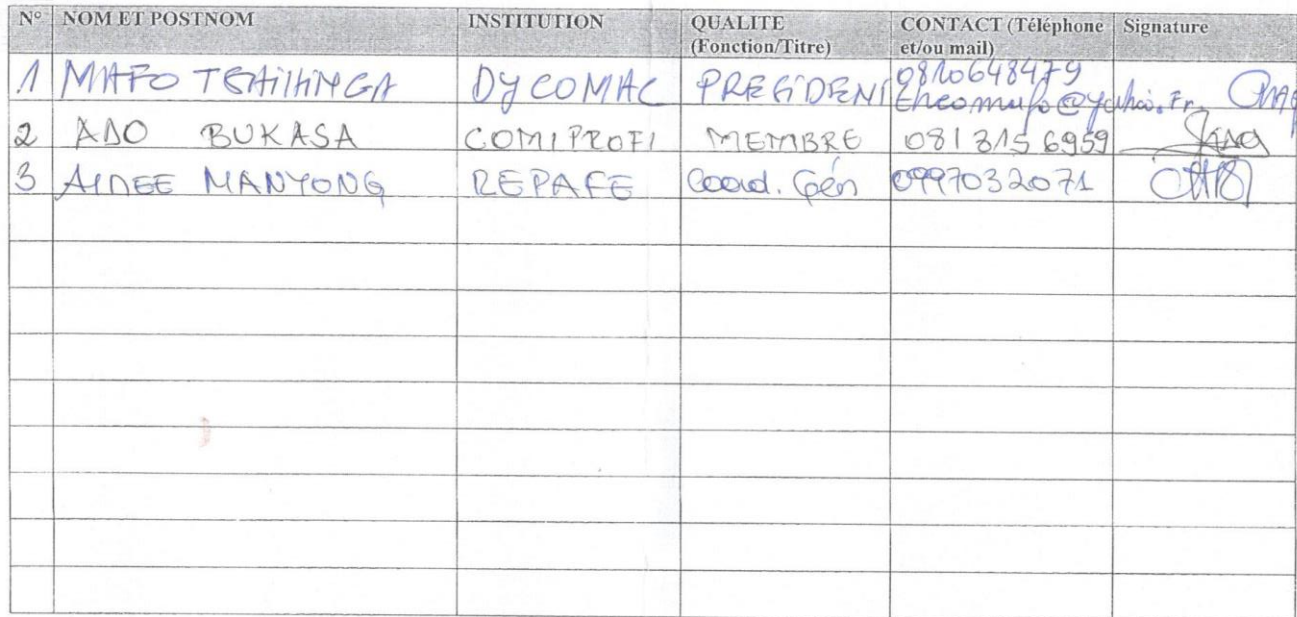 N° NOM ET POSTNOM INSTITUTION QUALITE (Fonction/Titre) CONTACT (Téléphone et/ou mail) Signature
1 MAFO DYCOMAC PRESIDENT 0810648479
2 ADO BUKASA COMIPROFI MEMBRE 081 315 6959
3 AIDEE MANYONG REPAFE Coord. Gén 0997032071